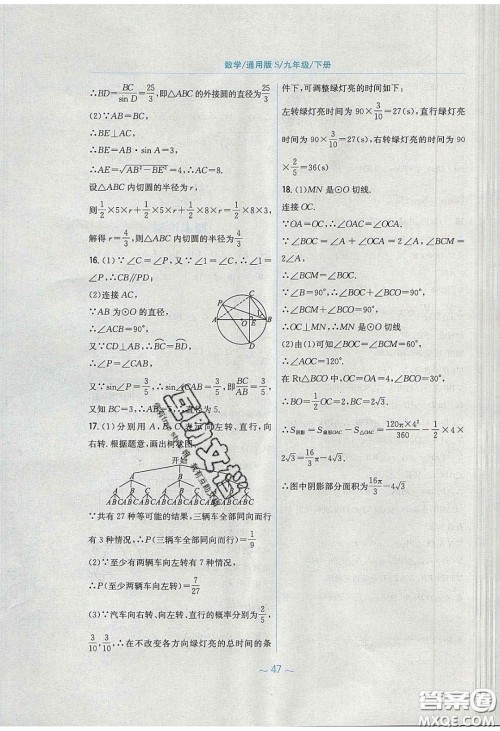 数学/通用版 S/九年级/下册
∴BD=BC/sin D=25/3,即△ABC 的外接圆的直径为25/3
(2)∵AB=BC,
∴BE⊥AC,
∴BE=AB·sin A=3,
∴AE=√(AB²-BE²)=4,∴AC=8.
设△ABC 内切圆的半径为 r,
则1/2×5×r+1/2×5×r+1/2×8×r=1/2×8×3,
解得 r=4/3,即△ABC 内切圆的半径为4/3
16.(1)∵∠C=∠P,又∵∠1=∠C,∴∠1=∠P,∴CB//PD;
(2)连接 AC,
∵AB 为⊙O 的直径,
∴∠ACB=90°.
又∵CD⊥AB,∴BC=BD,
∴∠P=∠CAB,
又∵sin∠P=3/5,∴sin∠CAB=3/5,即BC/AB=3/5,
又知 BC=3,∴AB=5,∴直径为 5.
17.(1)分别用 A,B,C 表示向左转、直行,向
右转.根据题意,画出树状图
开始
A B C
A B C A B C A B C
ABC ABC ABC ABC ABC ABC ABC ABC ABC
∵共有 27 种等可能的结果,三辆车全部同向而行
有 3 种情况,∴P(三辆车全部同向而行)=1/9
(2)∵至少有两辆车向左转有 7 种情况,
∴P(至少有两辆车向左转)=7/27
(3)∵汽车向右转、向左转、直行的概率分别为2/5,
3/10,3/10,∴在不改变各方向绿灯亮的总时间的条
件下,可调整绿灯亮的时间如下:
左转绿灯亮时间为 90×3/10=27(s),直行绿灯亮
时间为 90×3/10=27(s),右转绿灯亮的时间为 90
×2/5=36(s)
18.(1)MN 是⊙O 切线.
连接 OC.
∵OA=OC,∴∠OAC=∠OCA.
∵∠BOC=∠A+∠OCA=2∠A,∠BCM=
2∠A,
∴∠BCM=∠BOC.
∵∠B=90°,∴∠BOC+∠BCO=90°,
∴∠BCM+∠BCO=90°,
∴OC⊥MN,∴MN 是⊙O 切线
(2)由(1)可知∠BOC=∠BCM=60°,
∴∠AOC=120°.
在 Rt△BCO 中,OC=OA=4,∠BCO=30°,
∴BO=1/2OC=2,BC=2√3.
∴S阴影=S扇形OAC-S△OAC=120π×4²/360-1/2×4×
2√3=16π/3-4√3.
∴图中阴影部分面积为16π/3-4√3
~ 47 ~
答案圈
MXQE.COM